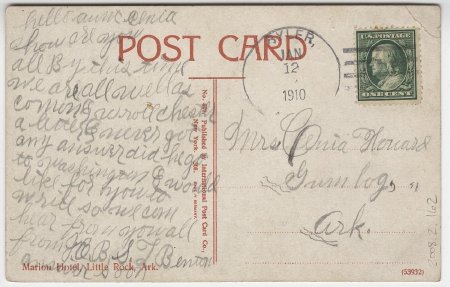 hello aunt Cenia
how are you
all By this time
we are all well as
common wrote chester
a letter never got
any answer did hear
to washington I would
like for you to
write so we can
hear from you all
from
B. S. T. Benton
POST CARD
TYLER,
JAN
12
1910
U.S. POSTAGE
ONE CENT
No. 607 Published by International Post Card Co.,
New York.
Mrs Cenia Howard
Gumlog,
Ark.
Marion Hotel, Little Rock, Ark.
(53932)
2008.2.162